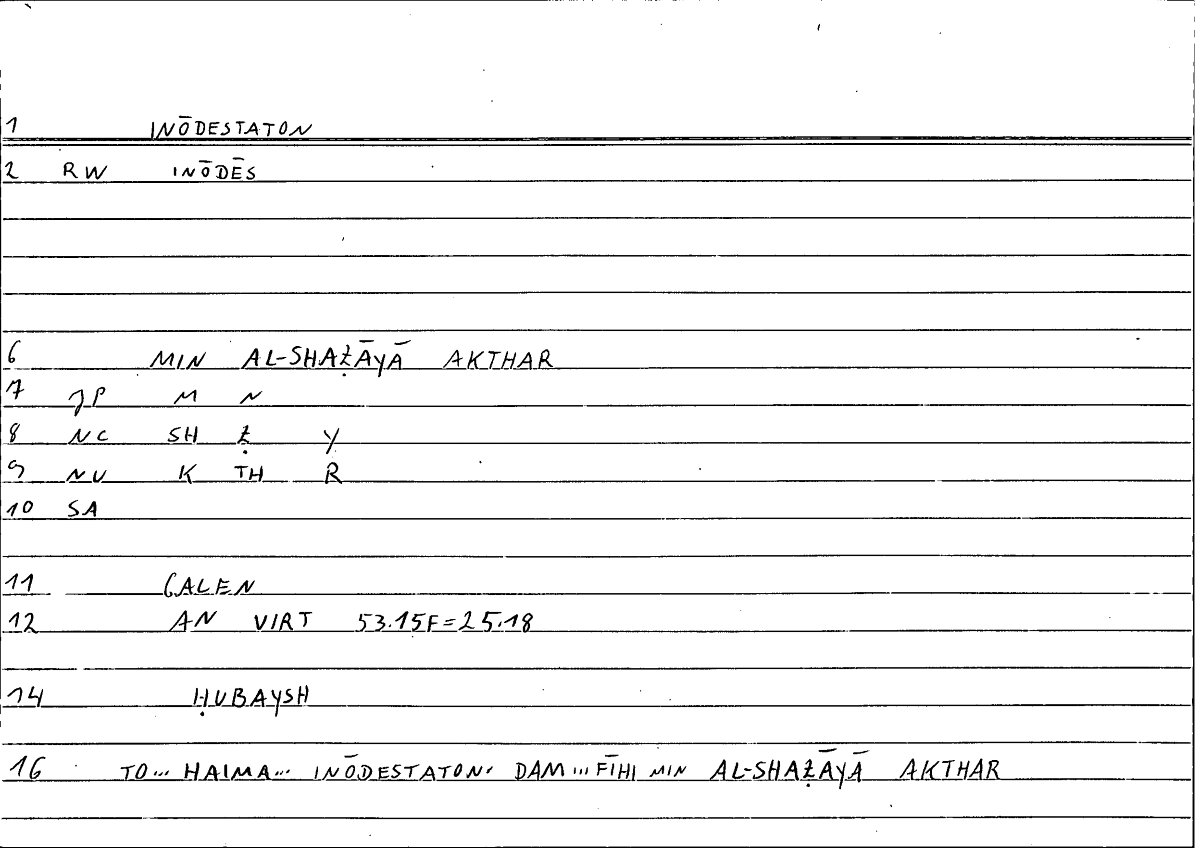 1 INŌDESTATON
2 RW INŌDĒS
6 MIN AL-SHAẒĀYĀ AKTHAR
7 JP M N
8 NC SH Ẓ Y
9 NU K TH R
10 SA
11 GALEN
12 AN VIRT 53.15F=25.18
14 ḤUBAYSH
16 TO... HAIMA... INŌDESTATON. DAM...FĪHI MIN AL-SHAẒĀYĀ AKTHAR